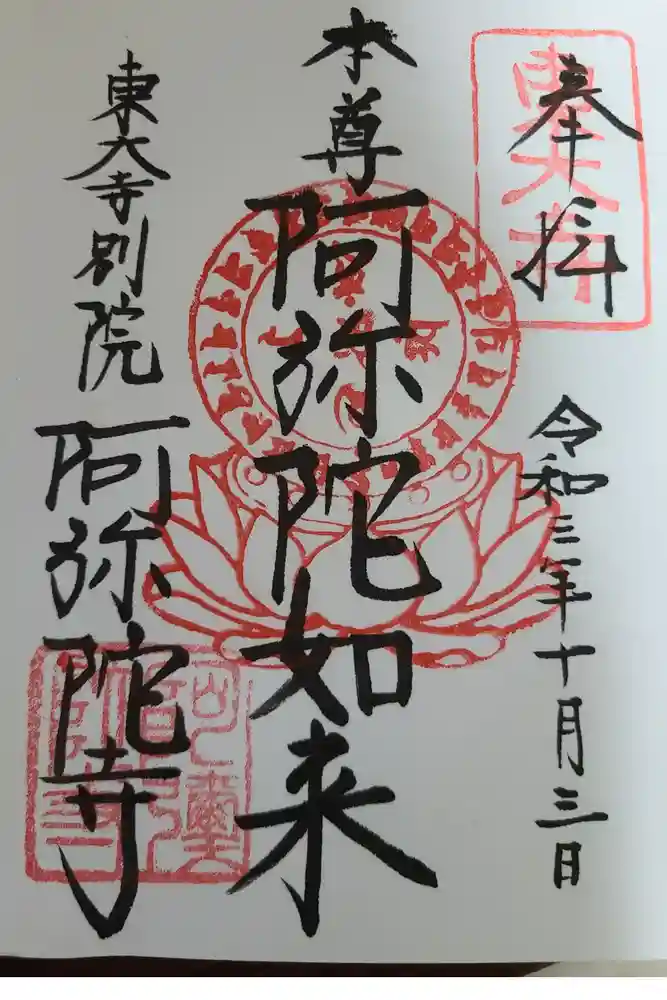 奉拝
令和三年十月三日
本尊
阿弥陀如来
東大寺別院
阿弥陀寺